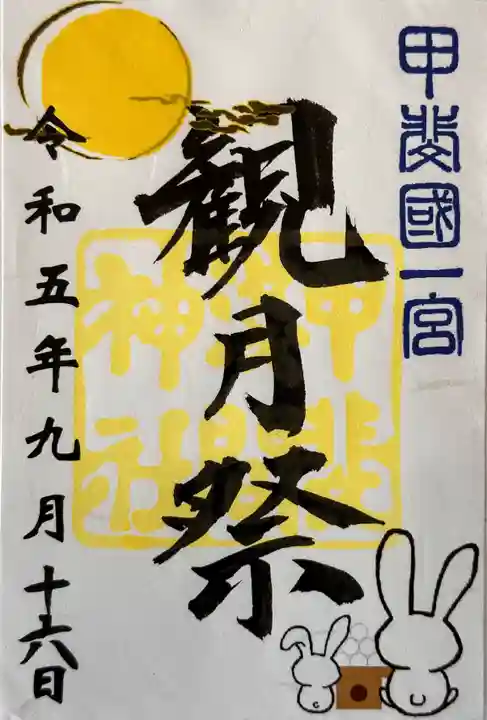 甲斐國一宮
観月祭
甲斐國
神社
令和五年九月十六日